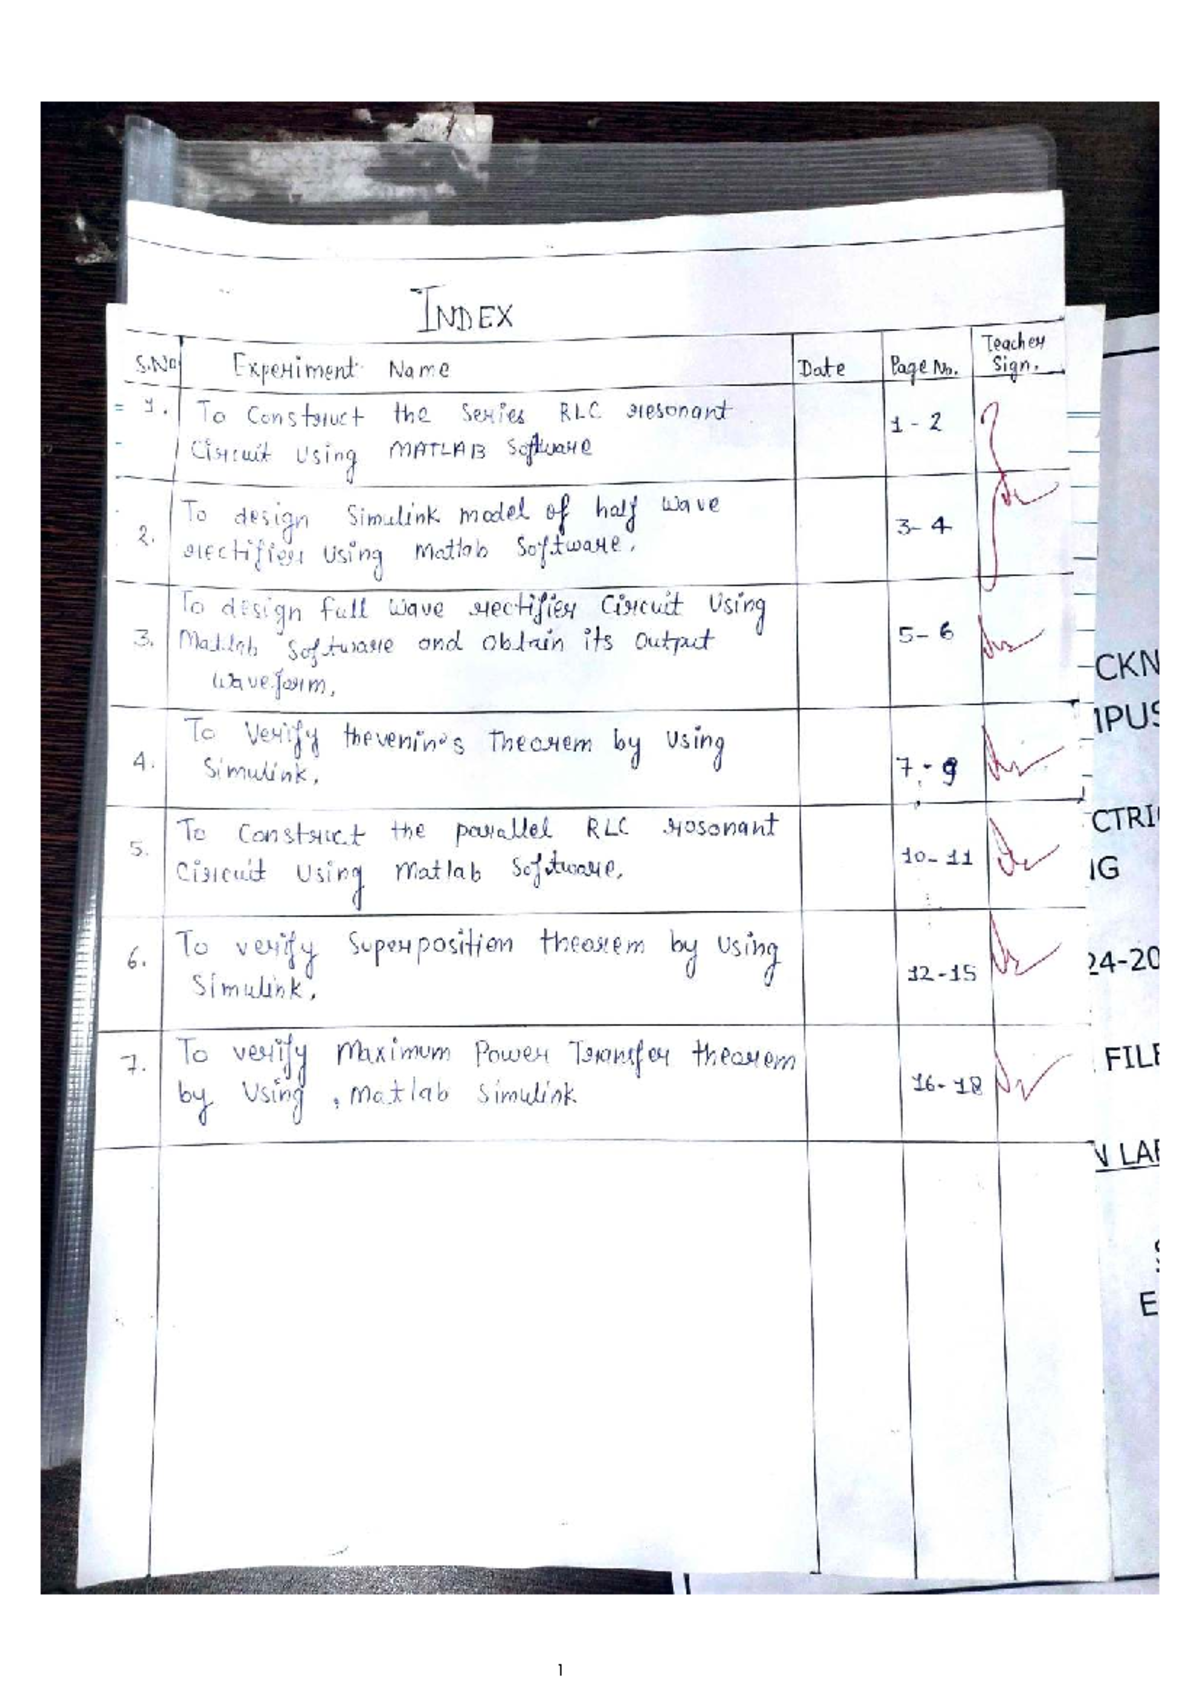 INDEX
S.No Experiment Name Date Page No. Teacher Sign.
1. To Construct the Series RLC resonant 1 - 2
Circuit Using MATLAB Software
2. To design Simulink model of half wave 3- 4
rectifier Using Matlab Software.
3. To design full wave rectifier Circuit Using 5- 6
Matlab Software and Obtain its Output
Waveform.
4. To Verify thevenin's Theorem by Using 7 - 9
Simulink.
5. To Construct the parallel RLC rosonant 10- 11
Circuit Using Matlab Software.
6. To verify Superposition theorem by Using 12-15
Simulink.
7. To verify Maximum Power Transfer theorem 16- 18
by Using Matlab Simulink
CKN
IPUS
CTRI
IG
24-20
FILE
N LAB
E
1